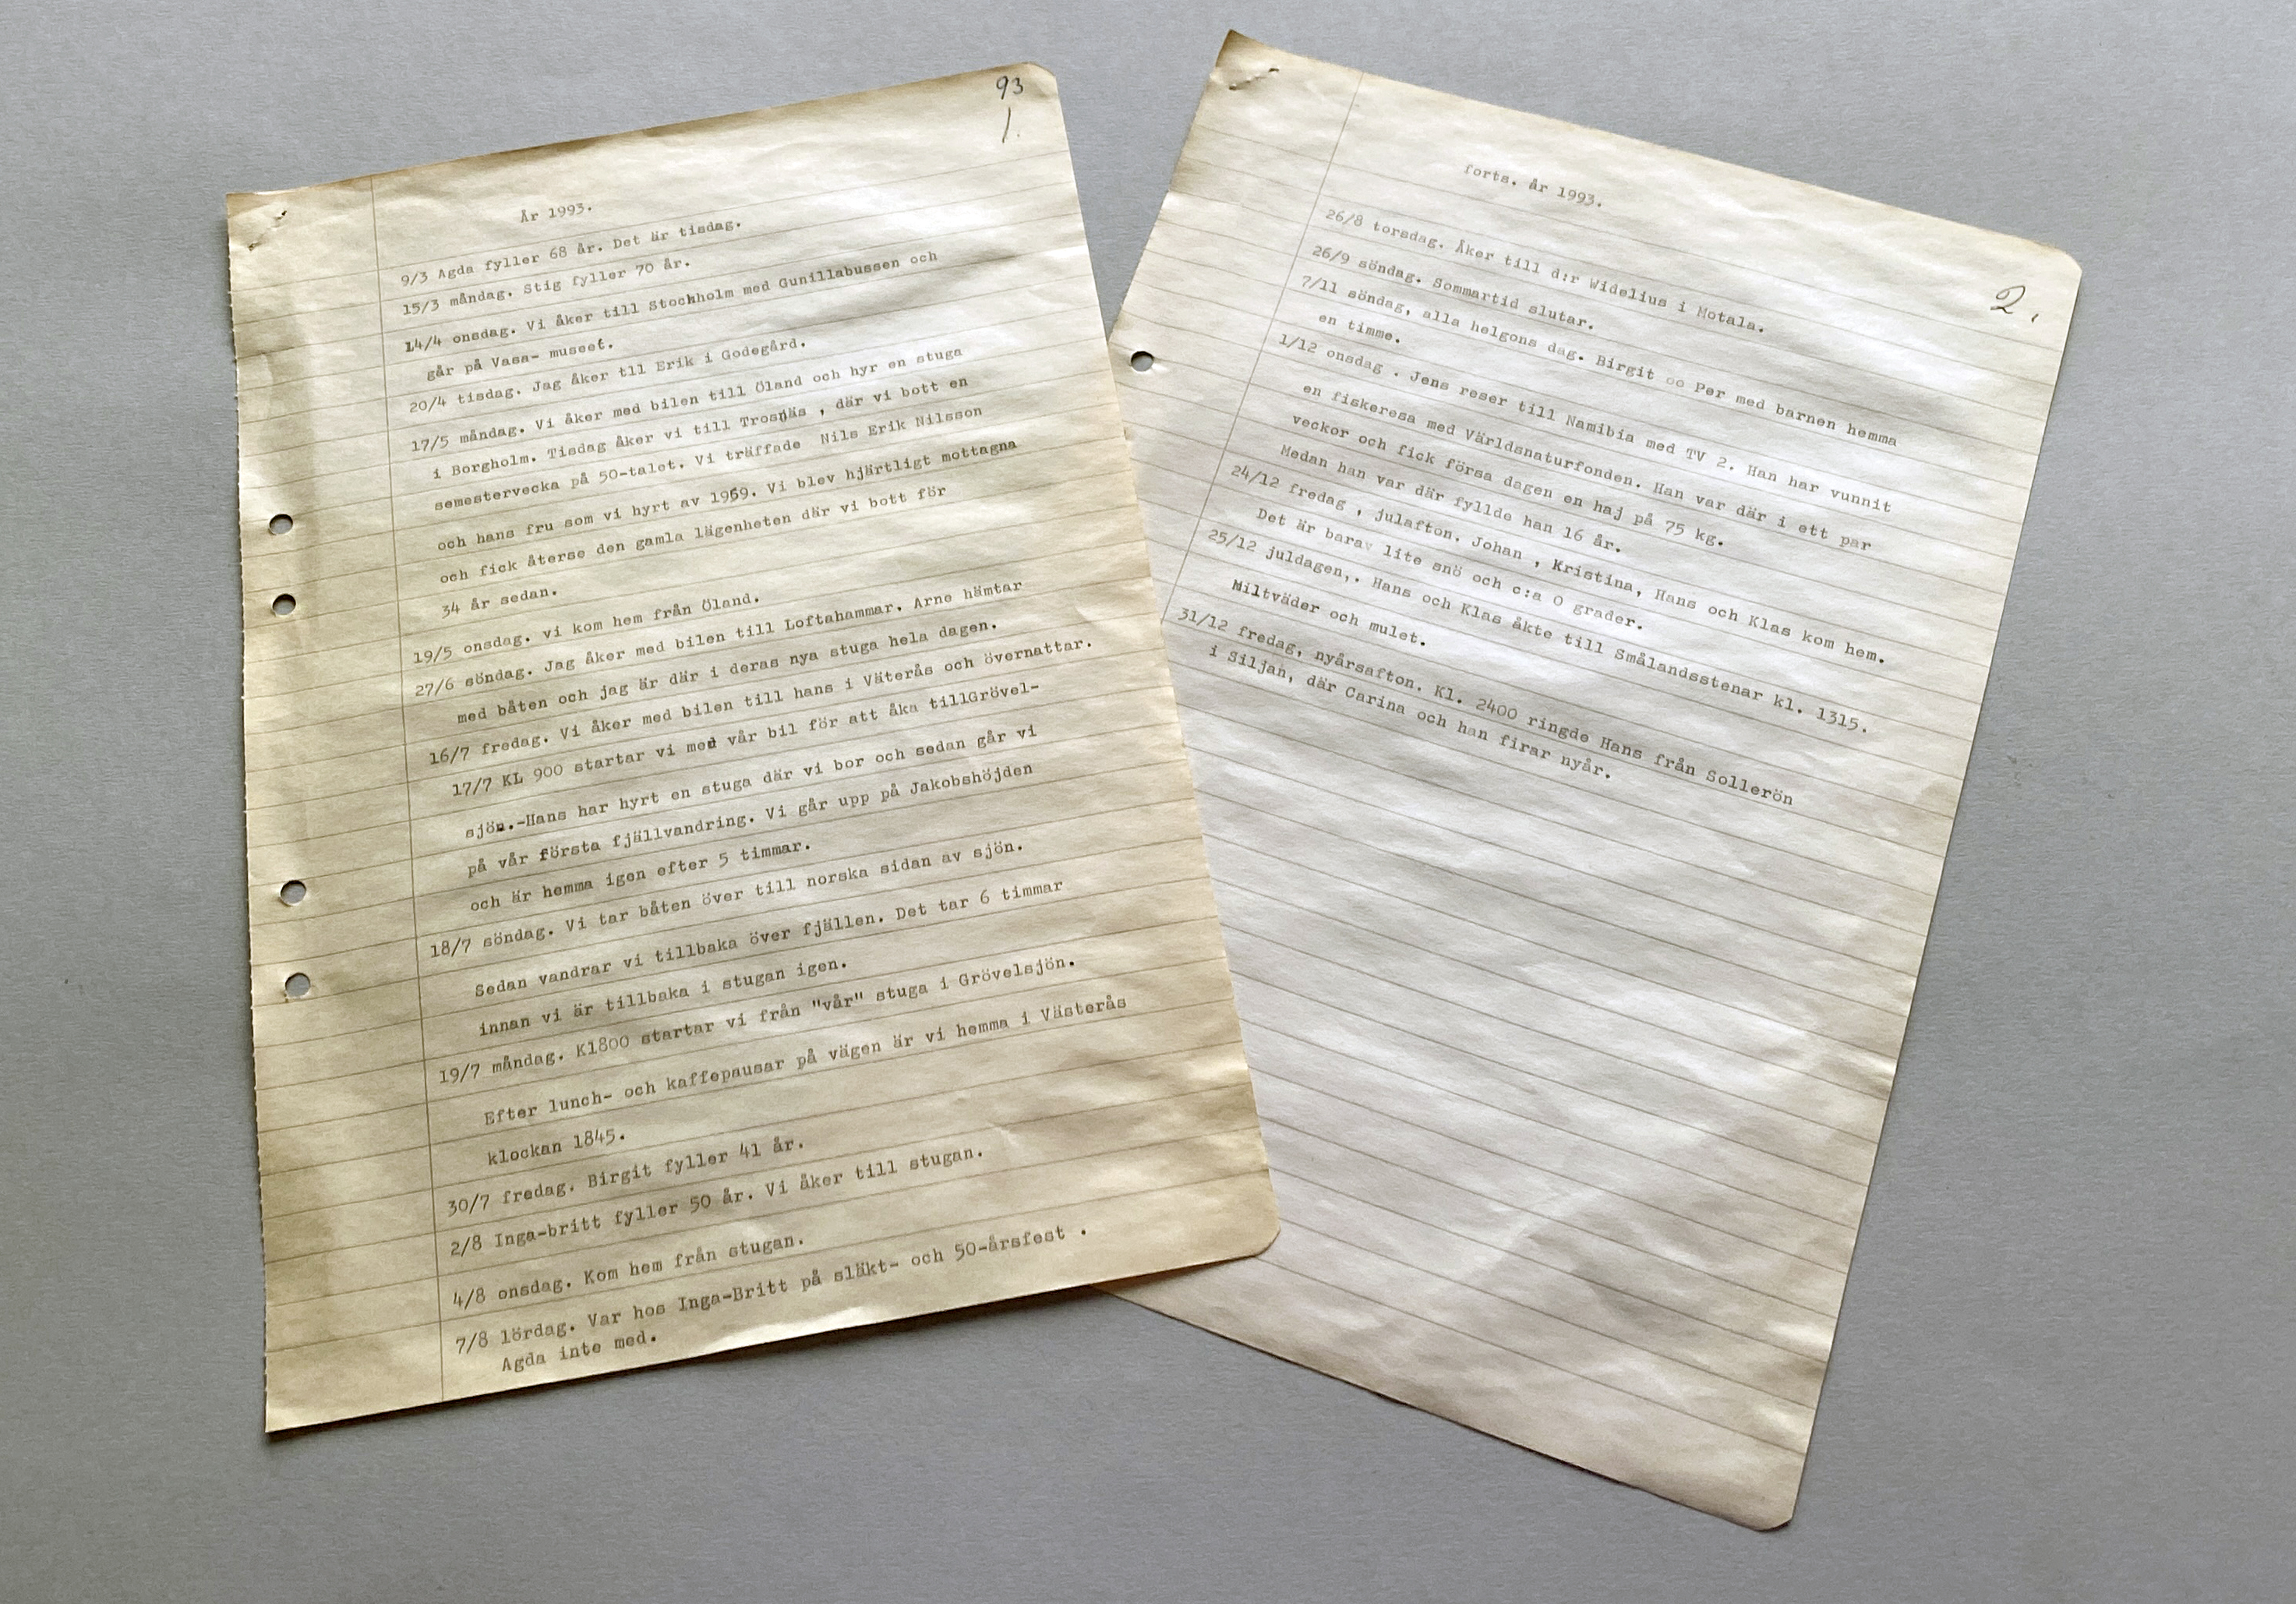 93
1.
År 1993.
9/3 Agda fyller 68 år. Det är tisdag.
15/3 måndag. Stig fyller 70 år.
14/4 onsdag. Vi åker till Stockholm med Gunillabussen och
går på Vasa- museet.
20/4 tisdag. Jag åker tll Erik i Godegård.
17/5 måndag. Vi åker med bilen till Öland och hyr en stuga
i Borgholm. Tisdag åker vi till Trosnäs , där vi bott en
semestervecka på 50-talet. Vi träffade Nils Erik Nilsson
och hans fru som vi hyrt av 1959. Vi blev hjärtligt mottagna
och fick återse den gamla lägenheten där vi bott för
34 år sedan.
19/5 onsdag. vi kom hem från Öland.
27/6 söndag. Jag åker med bilen till Loftahammar. Arne hämtar
med båten och jag är där i deras nya stuga hela dagen.
16/7 fredag. Vi åker med bilen till hans i Väterås och övernattar.
17/7 KL 900 startar vi med vår bil för att åka tillGrövel-
sjön.-Hans har hyrt en stuga där vi bor och sedan går vi
på vår första fjällvandring. Vi går upp på Jakobshöjden
och är hemma igen efter 5 timmar.
18/7 söndag. Vi tar båten över till norska sidan av sjön.
Sedan vandrar vi tillbaka över fjällen. Det tar 6 timmar
innan vi är tillbaka i stugan igen.
19/7 måndag. Kl800 startar vi från "vår" stuga i Grövelsjön.
Efter lunch- och kaffepausar på vägen är vi hemma i Västerås
klockan 1845.
30/7 fredag. Birgit fyller 41 år.
2/8 Inga-britt fyller 50 år. Vi åker till stugan.
4/8 onsdag. Kom hem från stugan.
7/8 lördag. Var hos Inga-Britt på släkt- och 50-årsfest .
Agda inte med.
2.
forts. år 1993.
26/8 torsdag. Åker till d:r Widelius i Motala.
26/9 söndag. Sommartid slutar.
7/11 söndag, alla helgons dag. Birgit oo Per med barnen hemma
en timme.
1/12 onsdag . Jens reser till Namibia med TV 2. Han har vunnit
en fiskeresa med Världsnaturfonden. Han var där i ett par
veckor och fick försa dagen en haj på 75 kg.
Medan han var där fyllde han 16 år.
24/12 fredag , julafton. Johan , Kristina, Hans och Klas kom hem.
Det är barav lite snö och c:a 0 grader.
25/12 juldagen,. Hans och Klas åkte till Smålandsstenar kl. 1315.
Miltväder och mulet.
31/12 fredag, nyårsafton. Kl. 2400 ringde Hans från Sollerön
i Siljan, där Carina och han firar nyår.